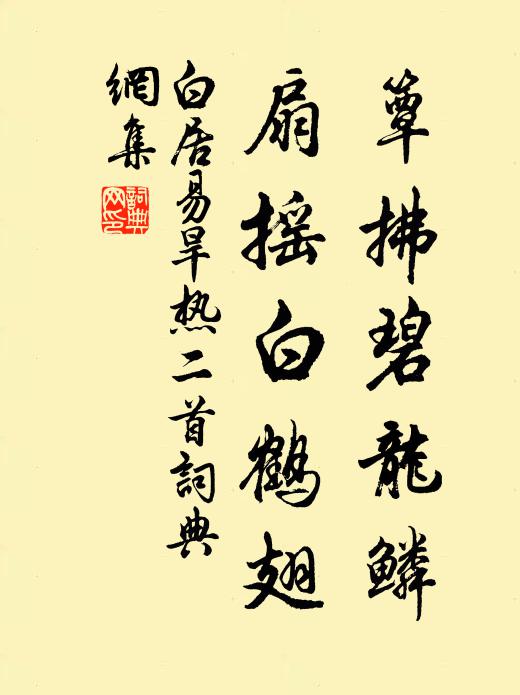 簟拂碧龍鱗
扇搖白鶴翅
白居易旱热二首詞典
網集
詞典網印